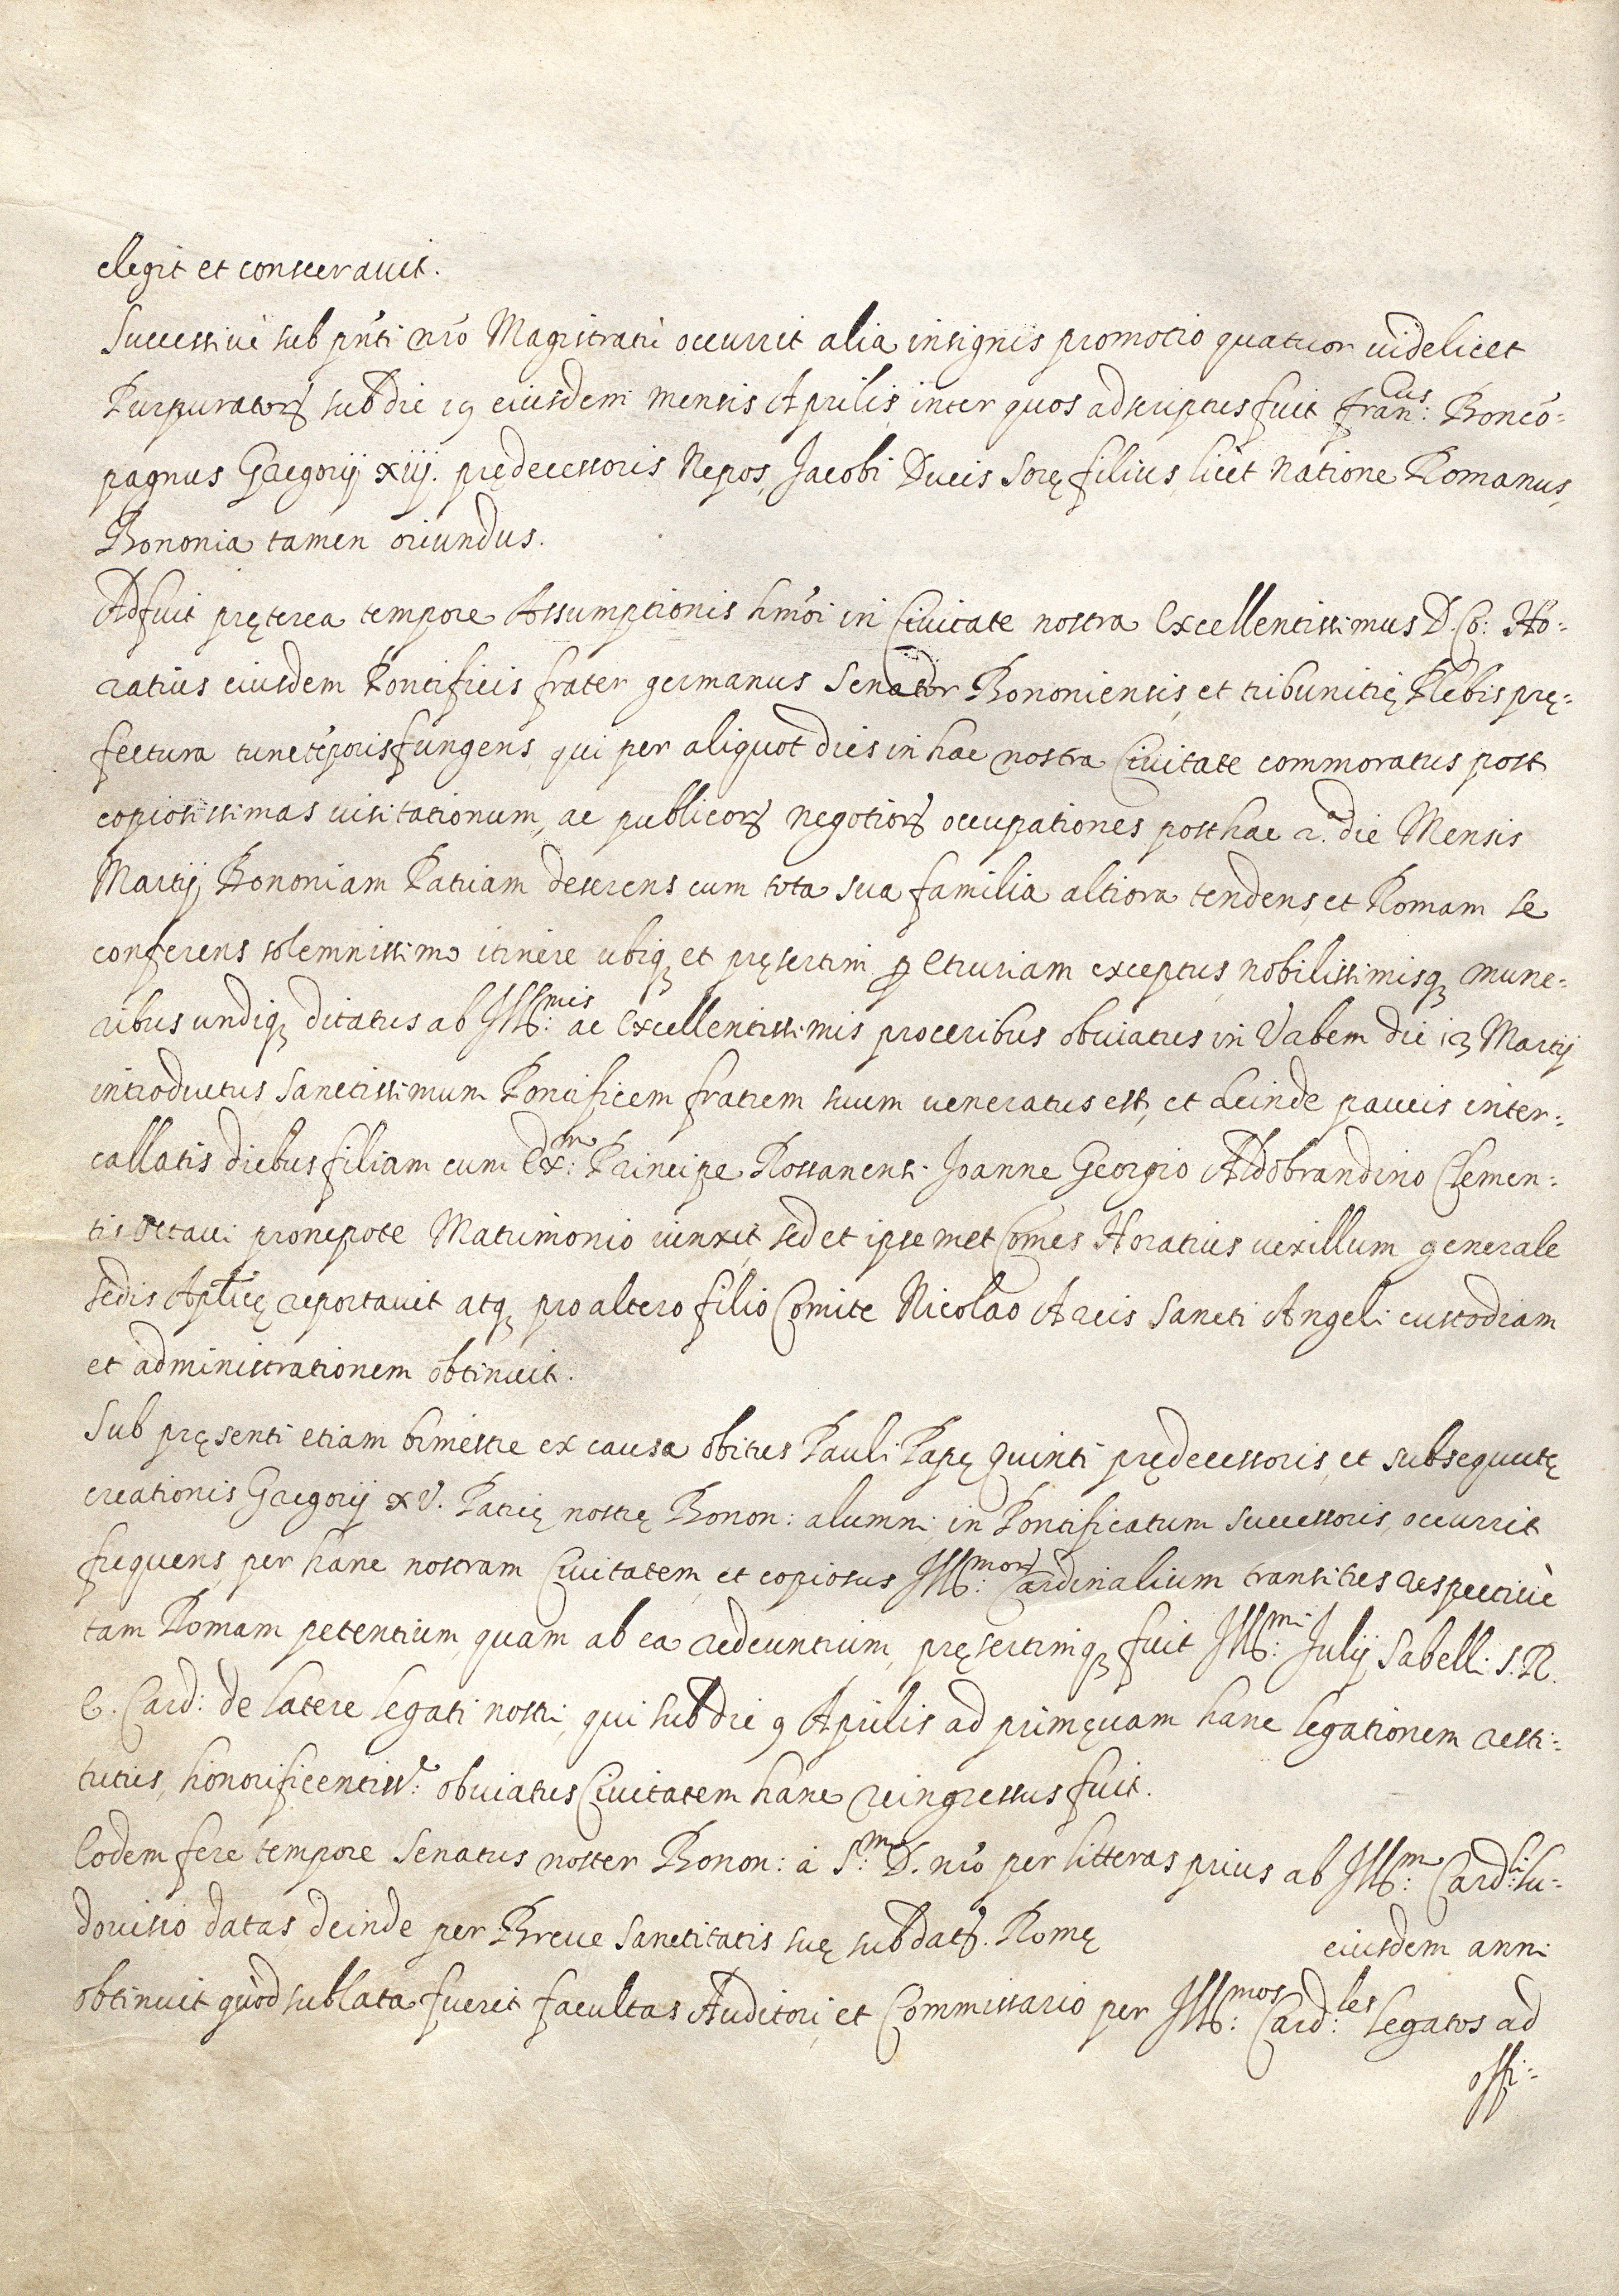 elegit et consecravit.
Successivè sub pñti nr̃o Magistratu occurrit alia insignis promotio quatuor videlicet
Purpuratorꝝ sub die 19 eiusdem mensis Aprilis, inter quos adscriptus fuit Fran:cus Bonco=
pagnus Gregorij xiij. prędecessoris Nepos, Jacobi Ducis Sorę filius, licet natione Romanus,
Bononia tamen oriundus.
Adfuit pręterea tempore Assumptionis hmõi in Civitate nostra Excellentissimus D. Co: Ho=
ratius eiusdem Pontificis frater germanus Senator Bononiensis, et tribunitię Plebis prę=
fectura tunc tẽporis fungens, qui per aliquot dies in hac nostra Civitate commoratus post
copiosissimas visitationum, ac publicorꝝ negotiorꝝ occupationes posthac 2.a die Mensis
Martij Bononiam Patriam deserens cum tota sua familia altiora tendens, et Romam se
conferens solemnissimo itinere ubiqꝫ et pręsertim ꝑ Etruriam exceptus, nobilissimisqꝫ mune=
ribus undiqꝫ ditatus ab Ill:mis ac Excellentissimis proceribus obviatus in Urbem die 13 Martij
introductus, Sanctissimum Pontificem fratrem suum veneratus est, et deinde paucis inter=
callatis diebus filiam cum Ex:mo Principe Rossanensi Joanne Georgio Aldobrandino Clemen=
tis Octavi pronepote Matrimonio vinxit, sed et ipsemet Comes Horatius vexillum generale
sedis Apl̃icę reportavit atqꝫ pro altero filio Comite Nicolao Arcis Sancti Angeli custodiam
et administrationem obtinuit.
Sub pręsenti etiam bimestre ex causa obitus Pauli Papę Quinti prędecessoris, et subsequutę
creationis Gregorij XV. Patrię nostrę Bonon: alumni in Pontificatum successoris, occurrit
frequens, per hanc nostram Civitatem, et copiosus Ill:morꝝ Cardinalium transitus respectivè
tam Romam petentium, quam ab ea redeuntium, pręsertimqꝫ fuit Ill:mi Julij Sabelli S. R.
E. Card: de latere legati nostri, qui sub die 9 Aprilis ad primęvam hanc legationem resti=
tutus, honorificentiss:e obviatus Civitatem hanc reingressus fuit.
Eodem fere tempore Senatus noster Bonon: à S:mo D. nr̃o per litteras prius ab Ill:mo Card:li Lu=
dovisio datas, deinde per Breve Sanctitatis suę sub datꝭ. Romę eiusdem anni
obtinuit quòd sublata fuerit facultas Auditori, et Commissario per Ill:mos Card:les Legatos ad
offi=